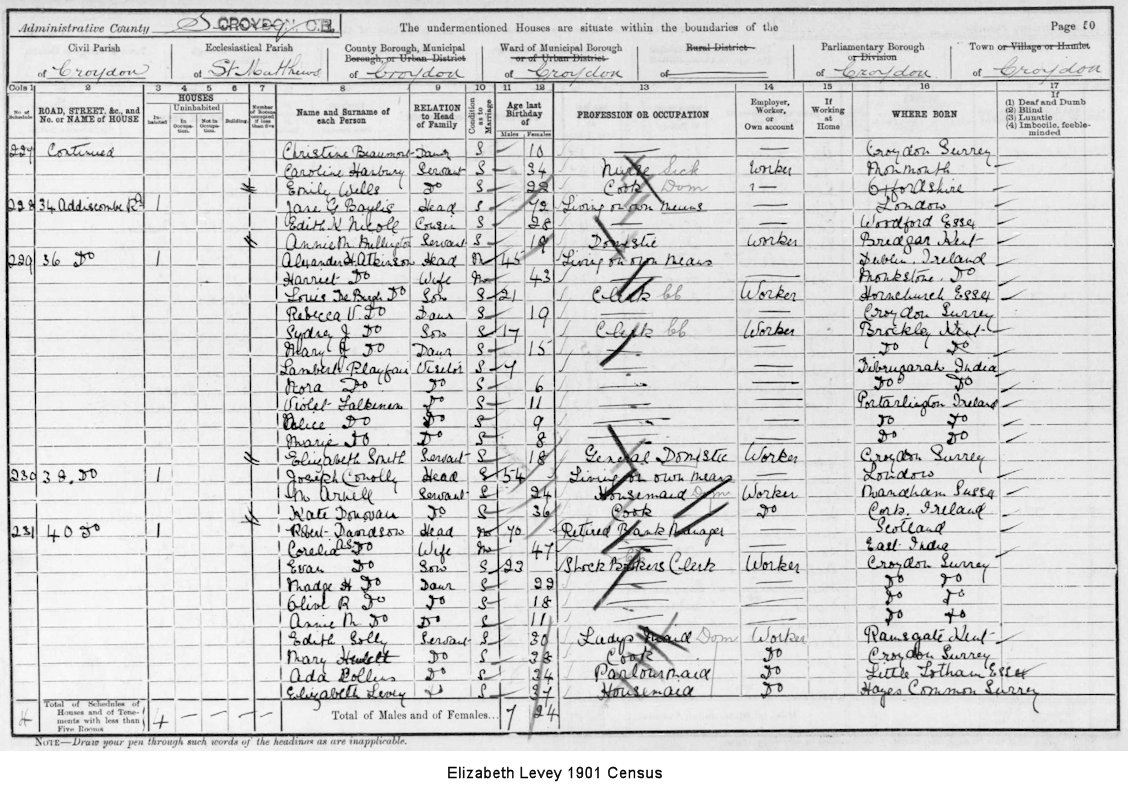 Administrative County S CROYDON C.B. The undermentioned Houses are situate within the boundaries of the Page 20
Civil Parish Ecclesiastical Parish County Borough, Municipal Borough, or Urban District Ward of Municipal Borough or of Urban District Rural District Parliamentary Borough or Division Town or Village or Hamlet
of Croydon of St Matthews of Croydon of Croydon of of Croydon of Croydon
Cols 1 2 3 4 5 6 7 8 9 10 11 12 13 14 15 16 17
No. of Schedule ROAD, STREET, &c., and No. or NAME of HOUSE HOUSES Inhabited Uninhabited In Occupation. Not in Occupation. Building. Number of Rooms occupied if less than five Name and Surname of each Person RELATION to Head of Family Condition as to Marriage Age last Birthday of Males Females PROFESSION OR OCCUPATION Employer, Worker, or Own account If Working at Home WHERE BORN If (1) Deaf and Dumb (2) Blind (3) Lunatic (4) Imbecile, feeble-minded
227 Continued Christine Beaumont Daur S 10 Croydon Surrey
Caroline Harbury Servant S 34 Nurse Sick Worker Monmouth
Emily Wells Do S 22 Cook Dom Oxfordshire
228 34 Addiscombe Rd 1 Jane G Baylis Head S 72 Living on own means London
Edith K Nicoll Cousin S 28 Woodford Essex
Annie M Servant S 19 Domestic Worker Bredgar Kent
229 36 Do 1 Alexander H Atkinson Head M 45 Living on own means Dublin, Ireland
Harriet Do Wife M 43 Monkstone, Do
Louis De Burgh Do Son S 21 Clerk Worker Hornchurch Essex
Rebecca V. Do Daur S 19 Croydon Surrey
Sydney J Do Son S 17 Clerk Worker Brockley Kent
Mary J Do Daur S 15 Do Do
Lambert Playfair Visitor S 7 Dibrugarah India
Nora Do Do S 6 Do Do
Violet Falkener Do S 11 Portarlington Ireland
Alice Do Do S 9 Do Do
Marie Do Do S 8 Do Do
Elizabeth Smith Servant S 18 General Domestic Worker Croydon Surrey
230 38 Do 1 Joseph Conolly Head S 54 Living on own means London
M Arnell Servant S 24 Housemaid Dom Worker Sussex
Kate Donovan Do S 36 Cook Do Cork, Ireland
231 40 Do 1 Robert Davidson Head M 70 Retired Bank Manager Scotland
Corelia Do Wife M 47 East India
Evan Do Son S 23 Stock Brokers Clerk Worker Croydon Surrey
Madge H Do Daur S 22 Do Do
Olive R Do Do S 18 Do Do
Annie M Do Do S 11 Do Do
Edith Solly Servant S 30 Ladys Maid Dom Worker Ramsgate Kent
Mary Hewlett Do S 38 Cook Do Croydon Surrey
Ada Collins Do S 34 Parlourmaid Do Little Totham Essex
Elizabeth Levey Do S 37 Housemaid Do Hayes Common Surrey
4 Total of Schedules of Houses and of Tenements with less than Five Rooms 4 Total of Males and of Females... 7 24
NOTE—Draw your pen through such words of the headings as are inapplicable.
Elizabeth Levey 1901 Census